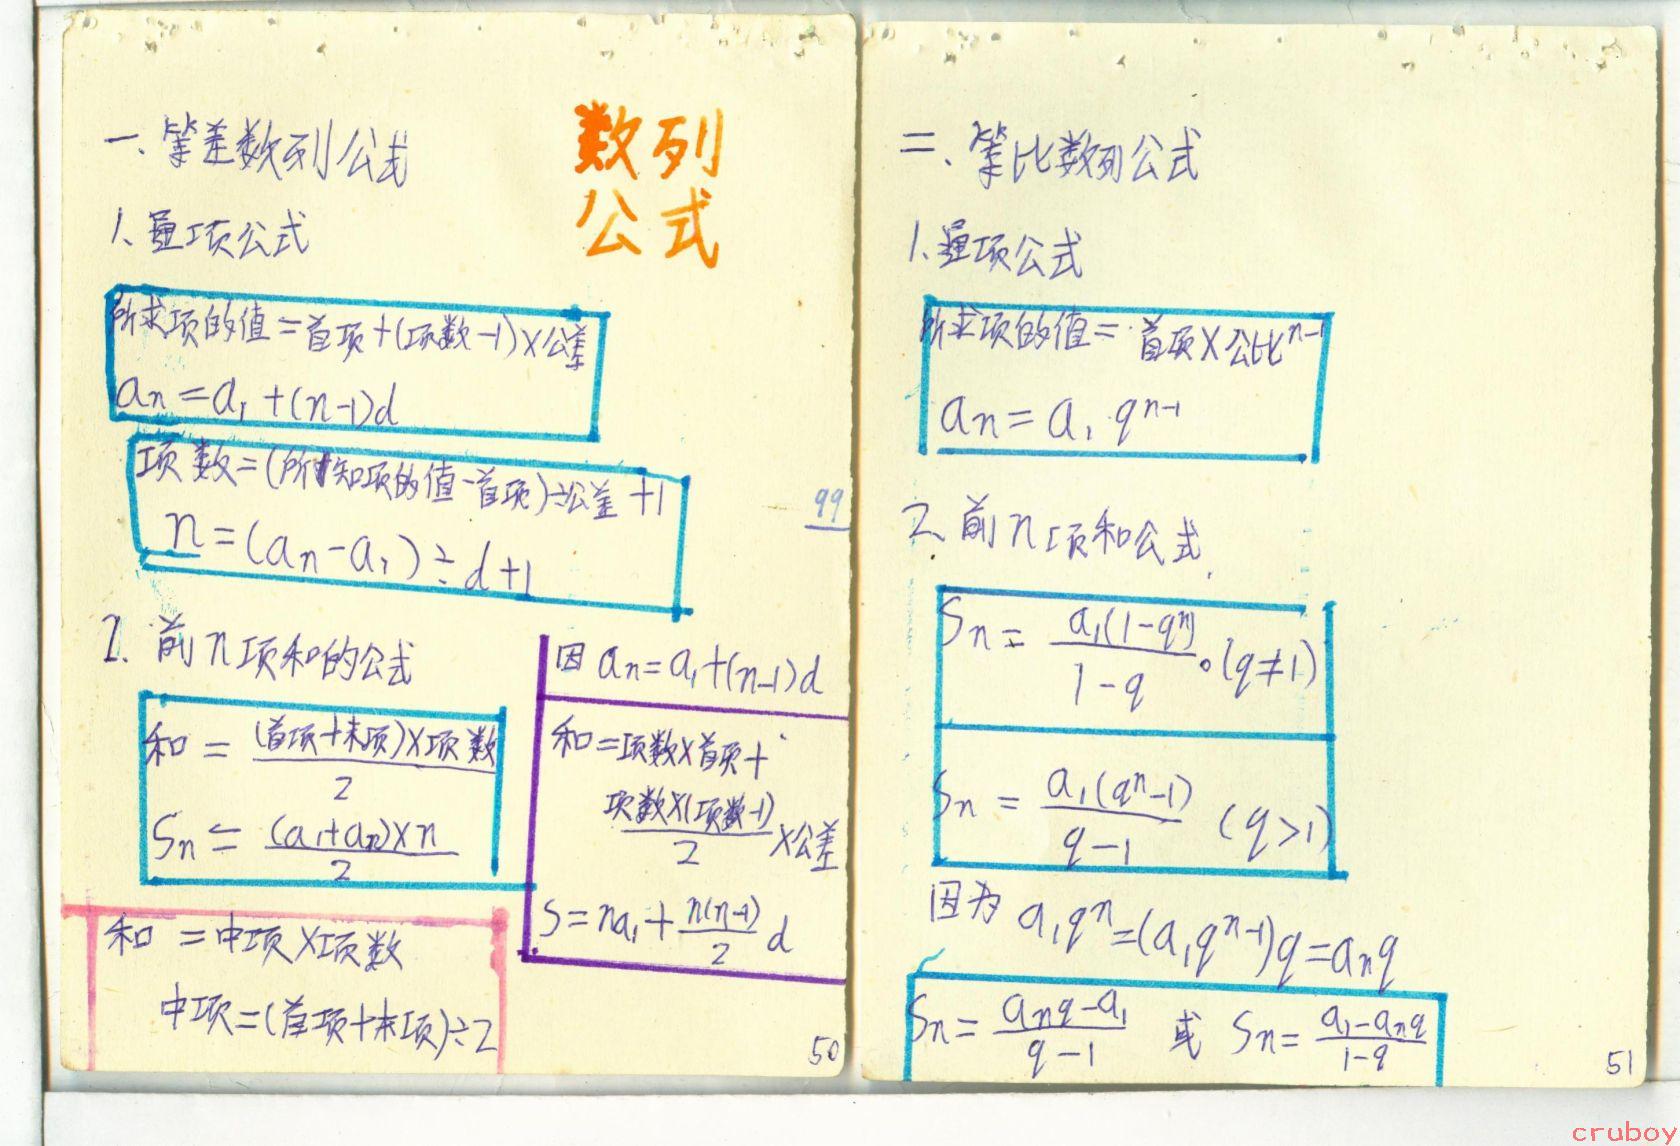 数列
公式
一、等差数列公式
1、通项公式
所求项的值=首项+(项数-1)×公差
an=a1+(n-1)d
项数=(所知项的值-首项)÷公差+1
n=(an-a1)÷d+1
99
2、前n项和的公式
和=(首项+末项)×项数/2
Sn=(a1+an)×n/2
和=中项×项数
中项=(首项+末项)÷2
因an=a1+(n-1)d
和=项数×首项+
项数×(项数-1)/2×公差
S=na1+n(n-1)/2 d
50
二、等比数列公式
1.通项公式
所求项的值=首项×公比^n-1
an=a1·q^n-1
2、前n项和公式
Sn=a1(1-q^n)/1-q。(q≠1)
Sn=a1(q^n-1)/q-1 (q>1)
因为a1q^n=(a1q^n-1)q=anq
Sn=anq-a1/q-1 或 Sn=a1-anq/1-q
51
cruboy